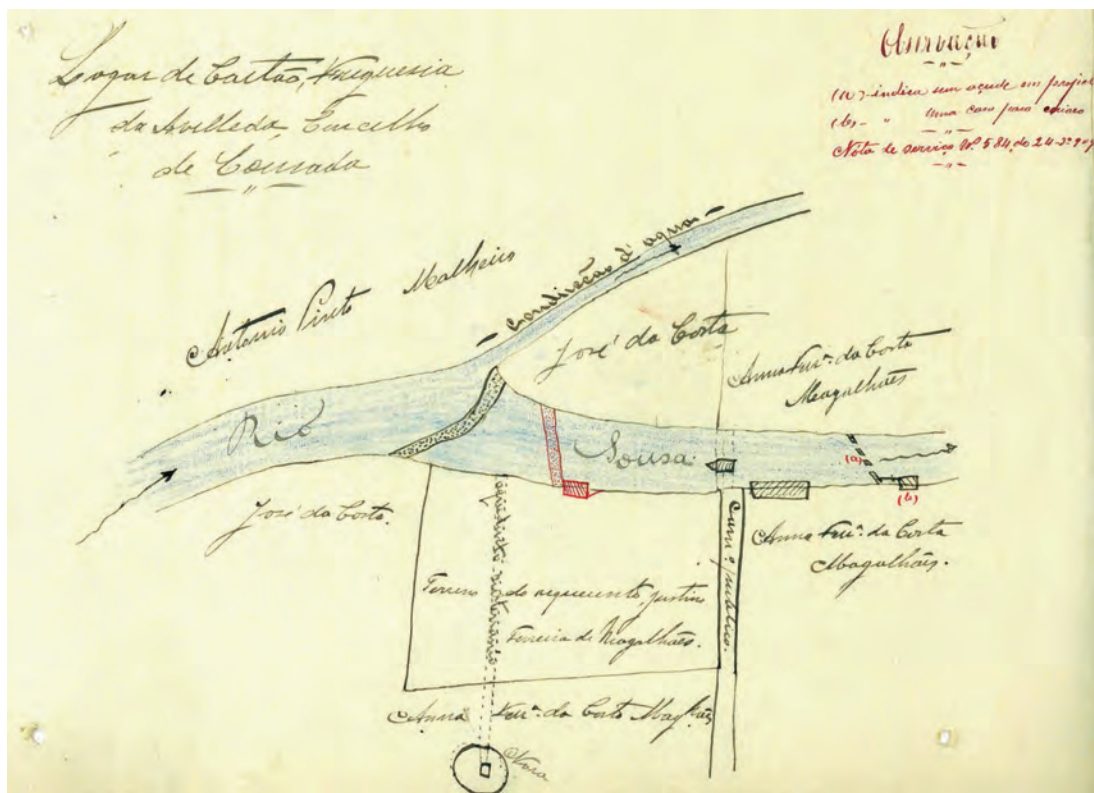 Logar de Caetão, Freguesia
da Avelleda, Concelho
de Louzada
Observação
(a) - indica um açude em projecto
(b) - " uma casa para
Nóta de serviço Nº 584, de 24-3º-909
Antonio Pinto Malheiro
Condução d'agua
José da Costa
Anna Ferrª. da Costa
Magalhães
Rio Sousa
(a)
(b)
José da Costa.
Anna Ferrª. da Costa
Magalhães.
Camº. publico.
Aqueducto subterraneo
Terreno do requerente, Justino
Ferreira de Magalhães.
Anna Ferrª. da Costa Magalhães
Nora